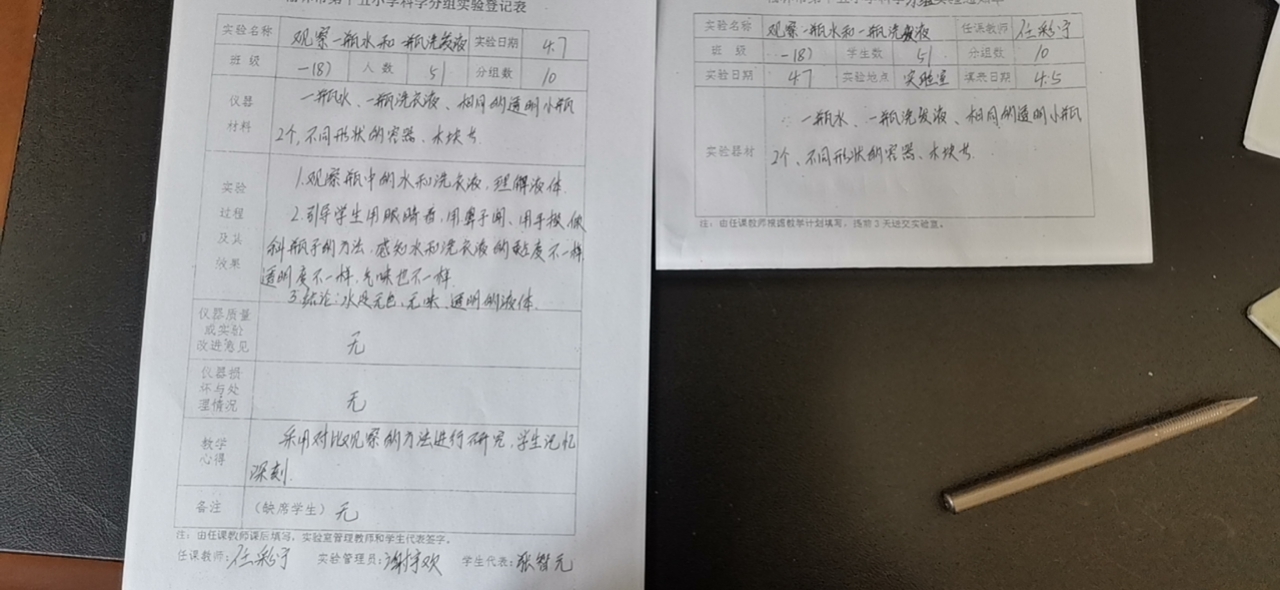 第十五小学科学分组实验登记表
实验名称 观察一瓶水和一瓶洗发液 实验日期 4.7
班级 一(8) 人数 51 分组数 10
仪器材料 一瓶水、一瓶洗衣液、相同的透明小瓶
2个,不同形状的容器、木块等
实验过程及其效果 1.观察瓶中的水和洗衣液,理解液体.
2.引导学生用眼睛看,用鼻子闻、用手摸,倾
斜瓶子的方法,感知水和洗衣液的粘度不一样
透明度不一样,气味也不一样.
3.结论:水是无色、无味、透明的液体.
仪器质量或实验改进意见 无
仪器损坏与处理情况 无
教学心得 采用对比观察的方法进行研究,学生记忆
深刻.
备注 (缺席学生) 无
注:由任课教师课后填写,实验室管理教师和学生代表签字。
任课教师: 实验管理员: 学生代表:张智元
实验名称 观察一瓶水和一瓶洗发液 任课教师
班级 一(8) 学生数 51 分组数 10
实验日期 4.7 实验地点 实验室 填表日期 4.5
实验器材 一瓶水、一瓶洗发液、相同的透明小瓶
2个、不同形状的容器、木块等.
注:由任课教师根据教学计划填写,提前3天送交实验室。